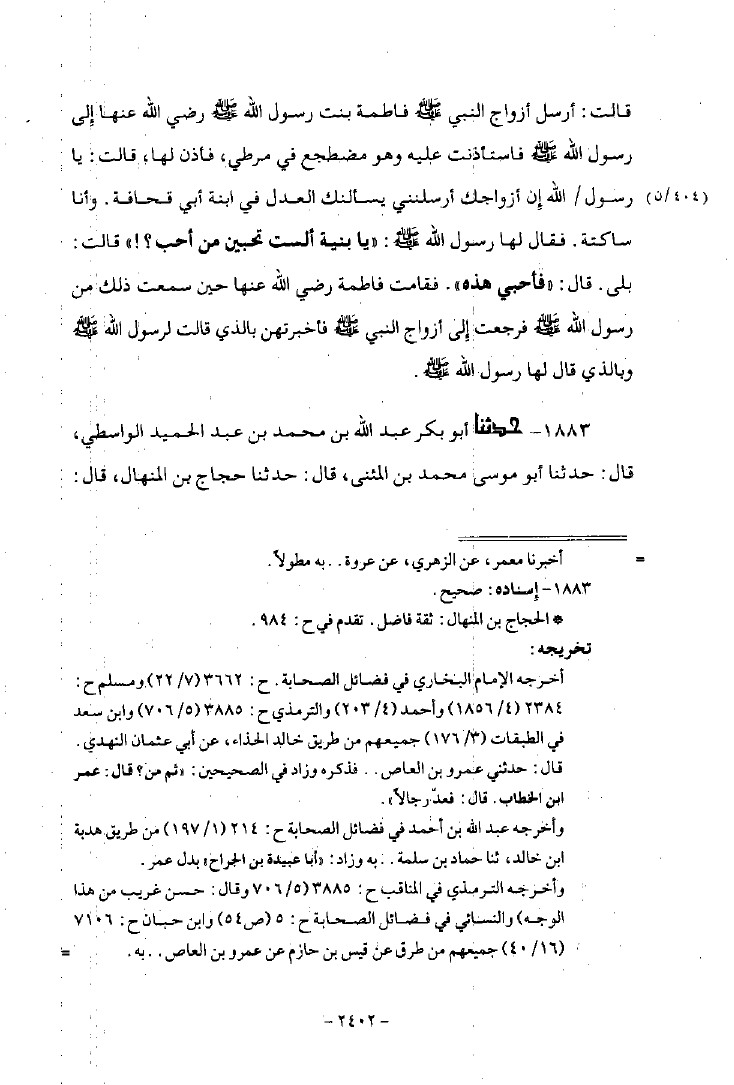 قالت: أرسل أزواج النبي ﷺ فاطمة بنت رسول الله ﷺ رضي الله عنها إلى
رسول الله ﷺ فاستأذنت عليه وهو مضطجع في مرطي، فأذن لها، قالت: يا
(٤٠٤/ن) رسول/ الله إن أزواجك أرسلنني يسألنك العدل في ابنة أبي قحافة. وأنا
ساكتة. فقال لها رسول الله ﷺ: «يا بنية ألست تحبين من أحب؟!» قالت:
بلى. قال: «فأحبي هذه». فقامت فاطمة رضي الله عنها حين سمعت ذلك من
رسول الله ﷺ فرجعت إلى أزواج النبي ﷺ فأخبرتهن بالذي قالت لرسول الله ﷺ
وبالذي قال لها رسول الله ﷺ.
١٨٨٣- حدثنا أبو بكر عبد الله بن محمد بن عبد الحميد الواسطي،
قال: حدثنا أبو موسى محمد بن المثنى، قال: حدثنا حجاج بن المنهال، قال:
= أخبرنا معمر، عن الزهري، عن عروة. . به مطولاً.
١٨٨٣- إسناده: صحيح.
* الحجاج بن المنهال: ثقة فاضل. تقدم في ح: ٩٨٤.
تخريجه:
أخرجه الإمام البخاري في فضائل الصحابة. ح: ٣٦٦٢ (٢٢/٧) ومسلم ح:
٢٣٨٤ (١٨٥٦/٤) وأحمد (٢٠٣/٤) والترمذي ح: ٣٨٨٥ (٧٠٦/٥) وابن سعد
في الطبقات (١٧٦/٣) جميعهم من طريق خالد الحذاء، عن أبي عثمان النهدي.
قال: حدثني عمرو بن العاص. . فذكره وزاد في الصحيحين: «ثم من؟ قال: عمر
ابن الخطاب. قال: فعدّ رجالاً».
وأخرجه عبد الله بن أحمد في فضائل الصحابة ح: ٢١٤ (١٩٧/١) من طريق هدبة
ابن خالد، ثنا حماد بن سلمة. . به وزاد: «أبا عبيدة بن الجراح» بدل عمر.
وأخرجه الترمذي في المناقب ح: ٣٨٨٥ (٧٠٦/٥ وقال: حسن غريب من هذا
الوجه) والنسائي في فضائل الصحابة ح: ٥ (ص٥٤) وابن حبان ح: ٧١٠٦
(٤٠/١٦) جميعهم من طرق عن قيس بن حازم عن عمرو بن العاص. . به. =
- ٢٤٠٢ -